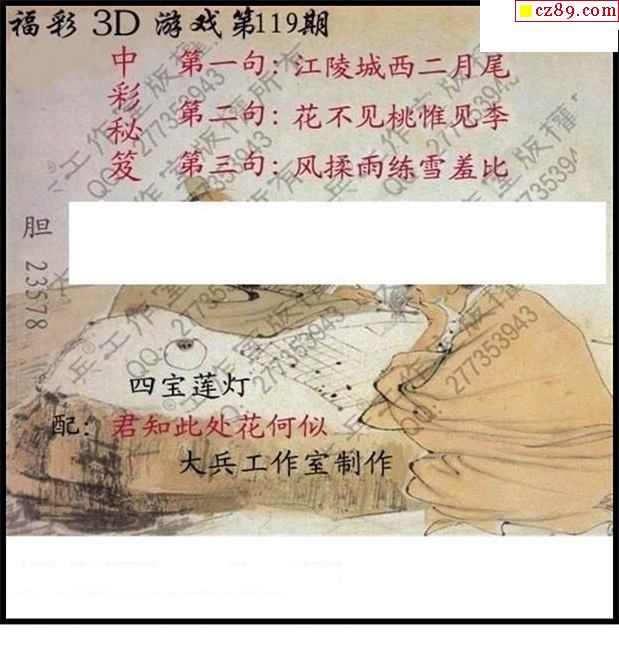 cz89.com
福彩 3D 游戏第119期
中彩秘笈
第一句：江陵城西二月尾
第二句：花不见桃惟见李
第三句：风揉雨练雪羞比
胆 23578
四宝莲灯
配：君知此处花何似
大兵工作室制作
大兵工作室版權所有
QQ：277353943